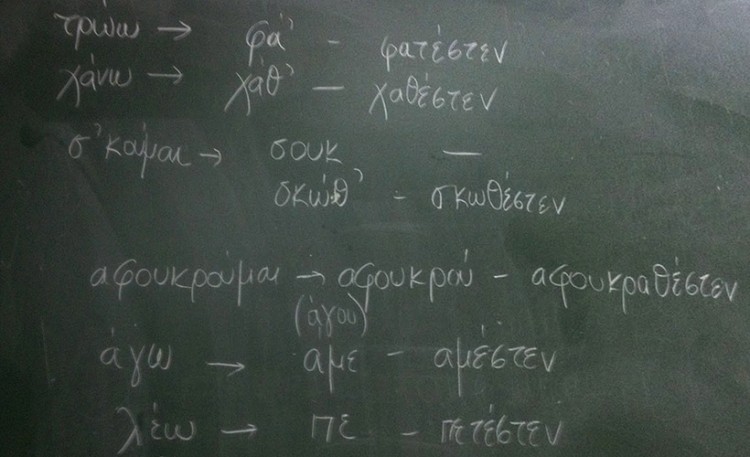 τρώω → φά' - φατέστεν
χάνω → χάθ' - χαθέστεν
σ'κούμαι → σουκ -
σκώθ' - σκωθέστεν
αφουκρούμαι → αφουκρού - αφουκραθέστεν
(άγου)
άγω → αμε - αμέστεν
λέω → πε - πετέστεν